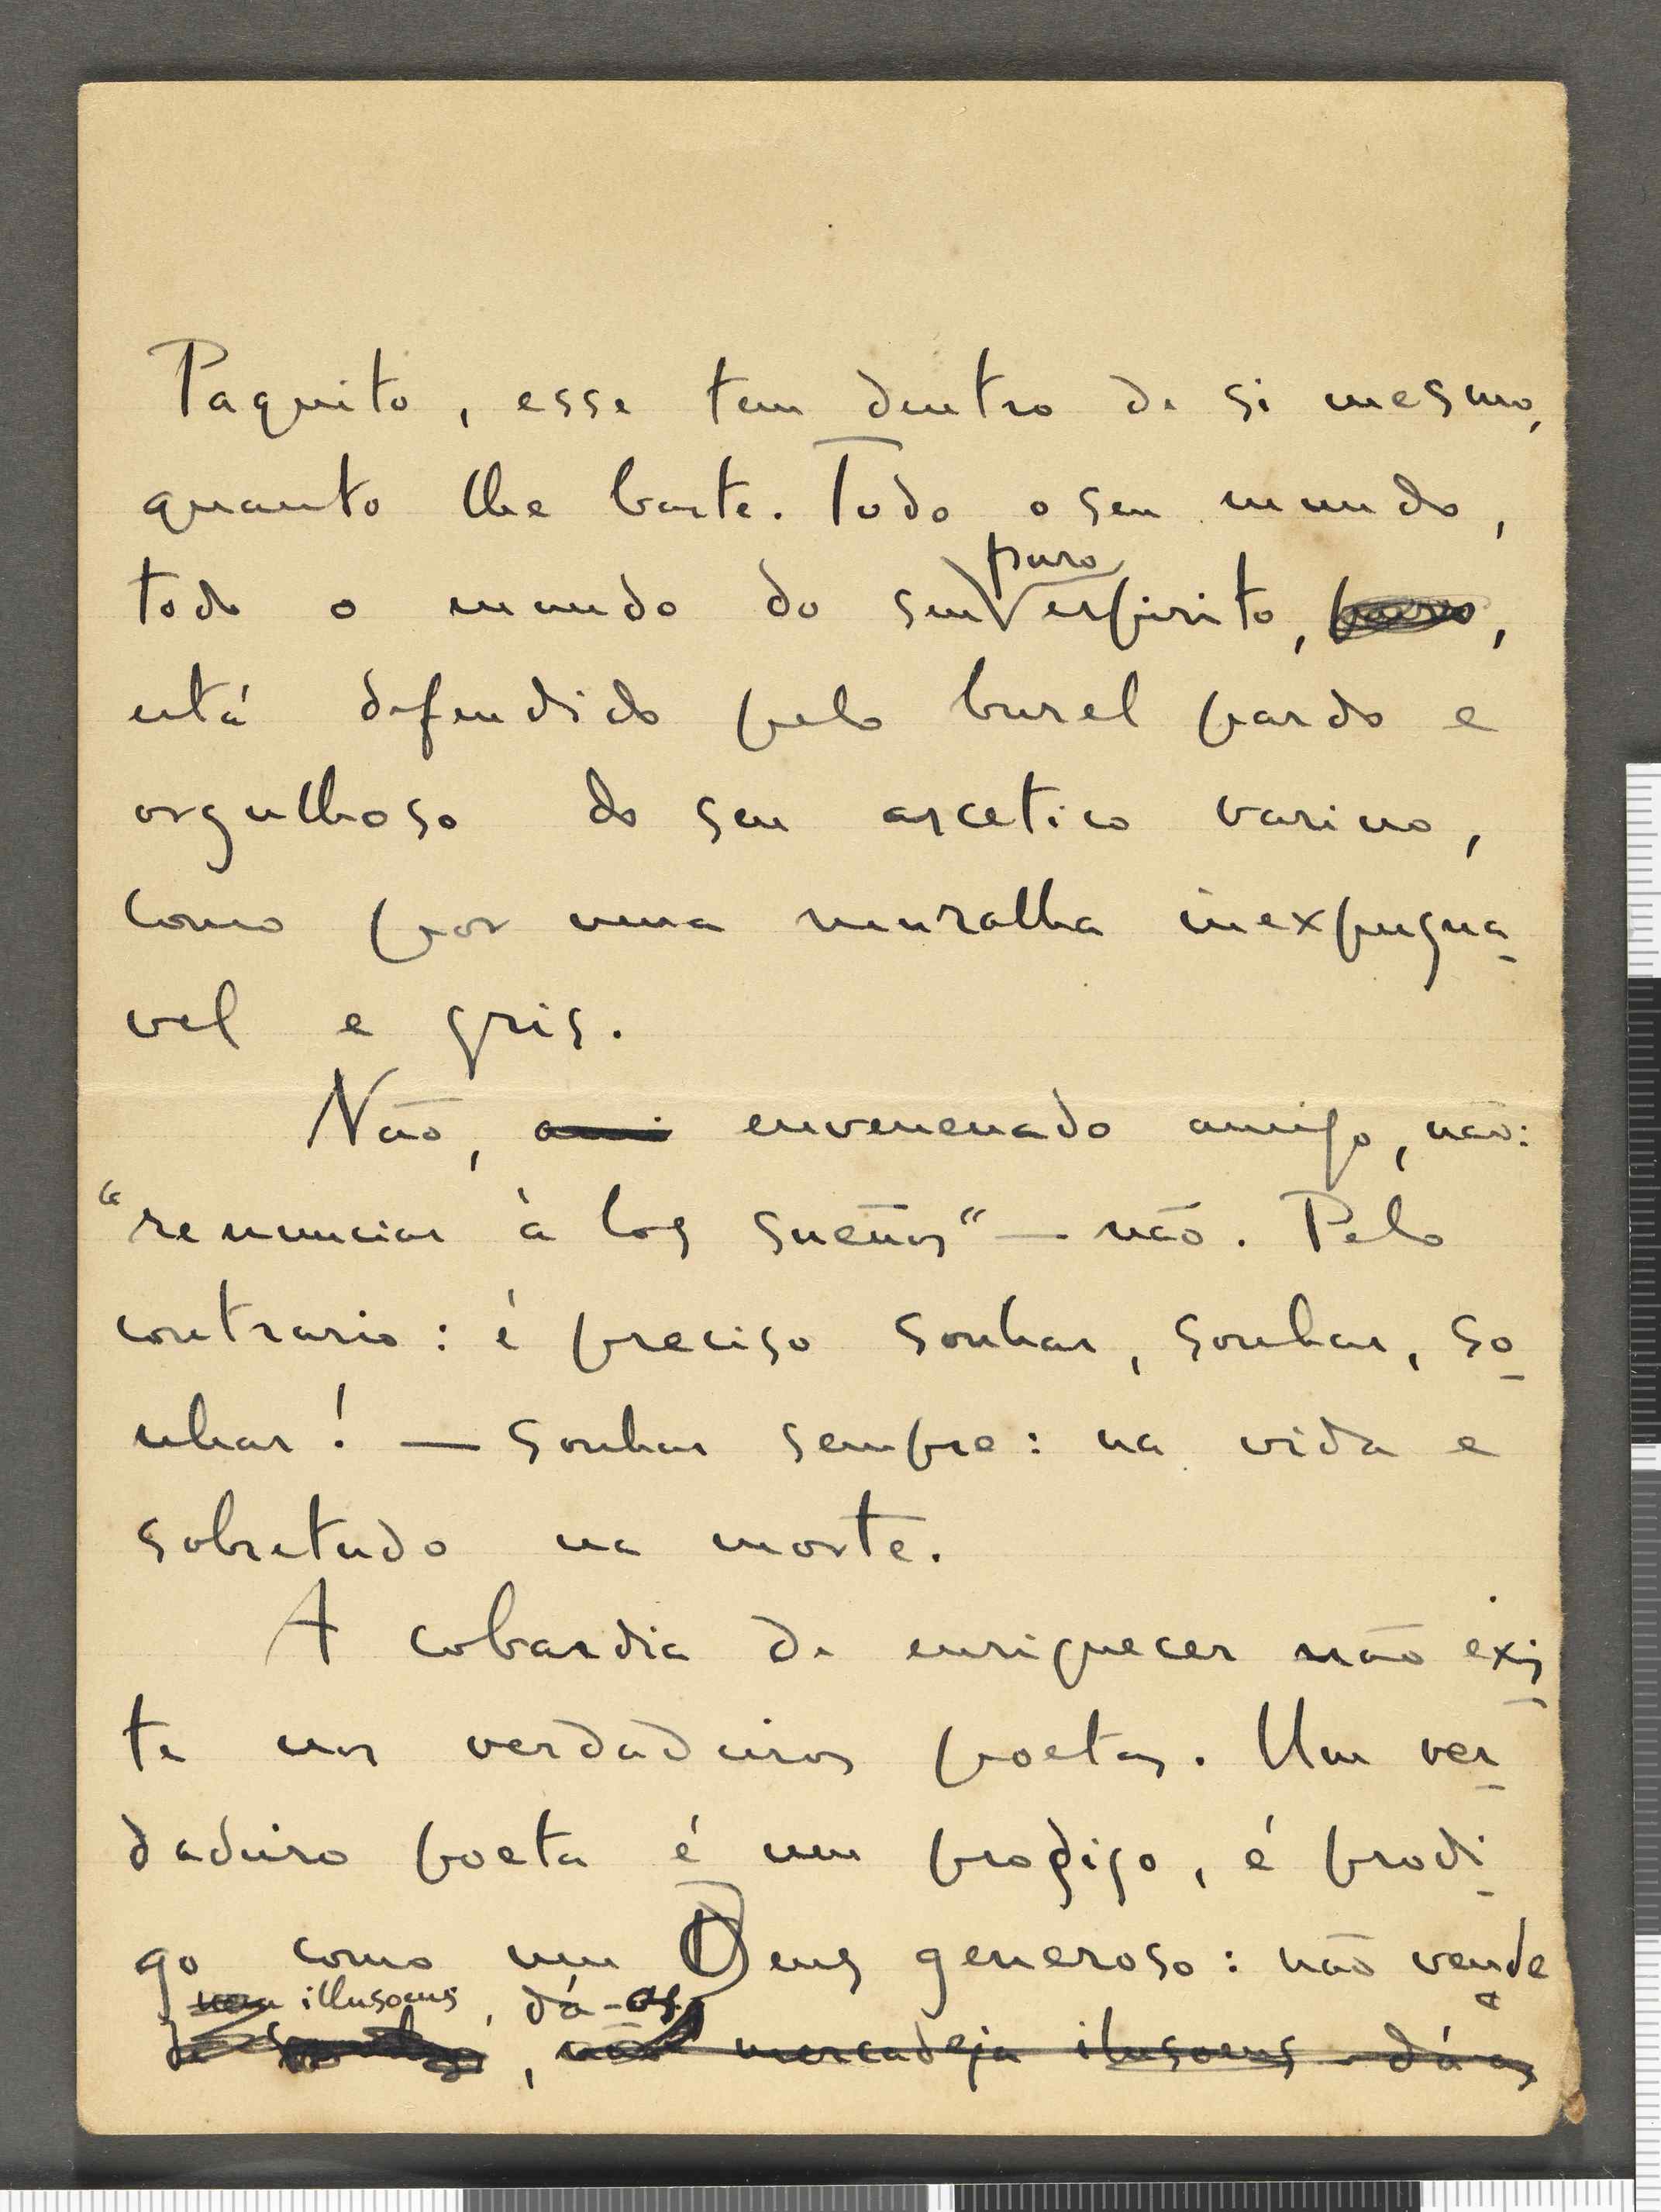 Paquito, esse tem dentro de si mesmo,
quanto lhe baste. Todo o seu mundo,
puro
todo o mundo do seu espirito, puro,
está defendido pelo burel pardo e
orgulhoso do seu ascetico varino,
como por uma muralha inexpugna-
vel e gris.
Não, ami envenenado amigo, não:
"renunciar à los sueños" — não. Pelo
contrario: é preciso sonhar, sonhar, so-
nhar! — sonhar sempre: na vida e
sobretudo na morte.
A cobardia de enriquecer não exis-
te nos verdadeiros poetas. Um ver-
dadeiro poeta é um prodigo, é prodi-
go como um Deus generoso: não vende
illusoens, dá-as
, não mercadeja ilusoens - dá as